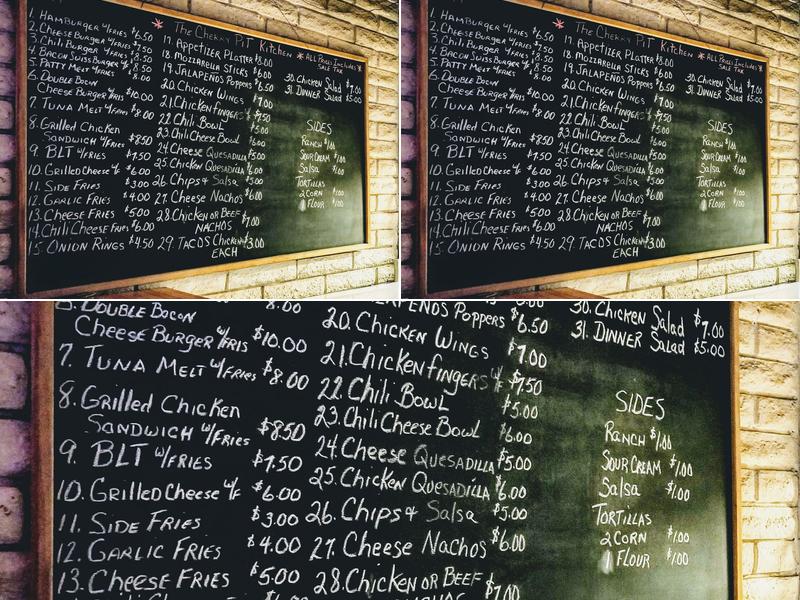 The Cherry Pit Kitchen
* ALL Prices Includes *
SALE TAX
1. HAMBURGER W/FRIES $6.50
2. CHEESE BURGER W/FRIES $7.50
3. CHILI BURGER W/FRIES $8.50
4. BACON SWISS BURGER W/F $8.50
5. PATTY MELT W/FRIES $8.00
6. DOUBLE BACON
CHEESE BURGER W/FRIS $10.00
7. TUNA MELT W/FRIES $8.00
8. Grilled Chicken
SANDWICH W/FRIES $8.50
9. BLT W/FRIES $7.50
10. Grilled Cheese W/F $6.00
11. SIDE FRIES $3.00
12. GARLIC FRIES $4.00
13. CHEESE FRIES $5.00
14. Chili Cheese FRIES $6.00
15. ONION RINGS $4.50
17. APPETIZER PLATTER $8.00
18. MOZZARELLA STICKS $6.00
19. JALAPEÑOS POPPERS $6.50
20. CHICKEN WINGS $7.00
21. Chicken fingers W/F $7.50
22. Chili BOWL $5.00
23. Chili Cheese BOWL $6.00
24. Cheese QUESADILLA $5.00
25. Chicken QUESADILLA $6.00
26. Chips & Salsa $5.00
27. Cheese Nachos $6.00
28. Chicken OR BEEF
NACHOS $7.00
29. TACOS Chicken $3.00
EACH
30. Chicken Salad $7.00
31. DINNER Salad $5.00
SIDES
RANCH $1.00
SOUR CREAM $1.00
Salsa $1.00
TORTILLAS
2 CORN $1.00
1 FLOUR $1.00